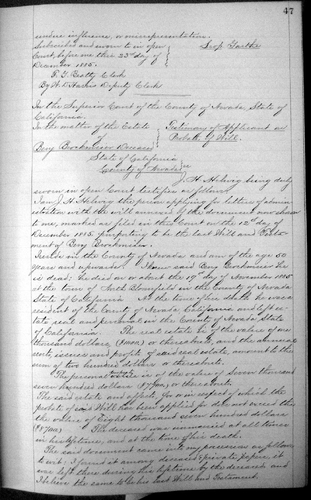 47
undue influence, or misrepresentation.
Subscribed and sworn to in open
Court, before me this 23rd day of
December 1885.
F. G. Beatty Clerk
By Deputy Clerk
In the Superior Court of the County of Nevada, State of
California.
In the matter of the Estate
of
Testimony of Applicant on
Probate of Will.
Deceased
State of California
County of Nevada
being duly
sworn in open Court testifies as follows
I am the person applying for letters of
with the will annexed of the document now shown
to me, marked as filed in this Court on the 12th day of
December 1885 purporting to be the last Will and
of
I reside in the County of Nevada and am of the age 50
years and upwards. I knew said
is dead. He died on or about the day of November 1885
at the town of North Bloomfield in the County of Nevada
State of California. At the time of his death he was a
resident of the County of Nevada, California and left
real and personal in the County of Nevada State
of California. The real estate is of the value of one
thousand dollars, or thereabouts, and the annual
rents, issues and profits of said real estate, amount to the
sum of two hundred dollars or thereabouts.
The personal estate is of the value of Seven thousand
seven hundred dollars or thereabouts.
The said estate and effects, for or in respect of which the
probate of said Will has been applied for do not exceed the
value of Eight thousand seven hundred dollars
The deceased was unmarried at all times
in his lifetime, and at the time of his death.
The said document came into my possession as follows
to wit: I found it among deceased's private papers, it
was left there during the lifetime by the deceased and
I believe the same to be his said Will and Testament.